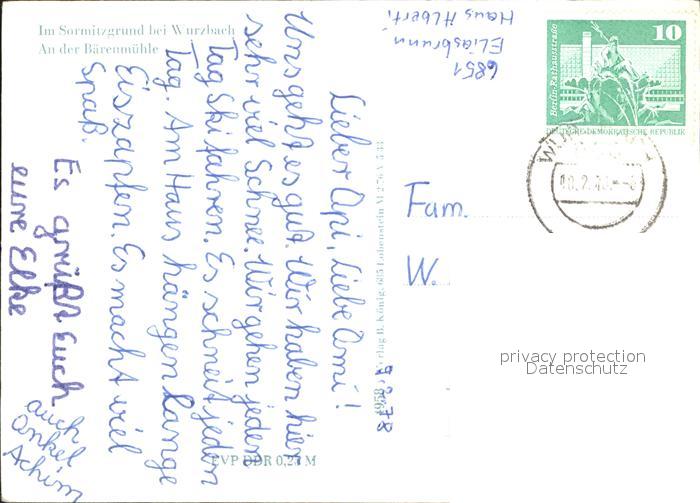 Im Sormitzgrund bei Wurzbach
An der Bärenmühle
6851
Eliasbrunn,
Haus Albert
Lieber Opi, liebe Omi!
Uns geht es gut. Wir haben hier
sehr viel Schnee. Wir gehen jeden
Tag Ski fahren. Es schneit jeden
Tag. Am Haus hängen lange
Eiszapfen. Es macht viel
Spaß.
Es grüßt Euch
eure Elke
auch
Onkel
Achim
9.2.78
EVP DDR 0,20 M
Verlag B. König, 685 Lobenstein
Berlin-Rathausstraße
10
DEUTSCHE DEMOKRATISCHE REPUBLIK
Fam.
W.
privacy protection
Datenschutz